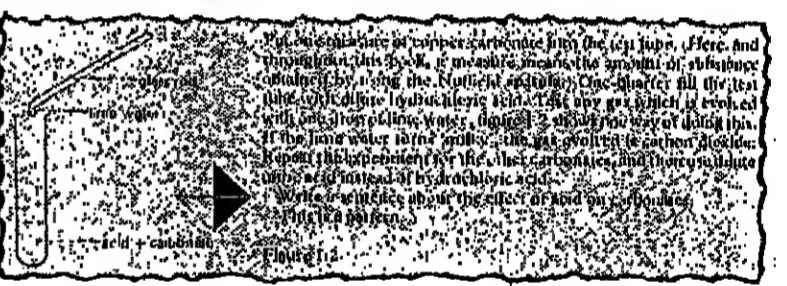 Put one measure of copper carbonate into the test tube. (Here, and
throughout this book, a measure means the amount of substance
obtained by using the Nuffield spatula.) One-quarter fill the test
tube with dilute hydrochloric acid. Test any gas which is evolved
with one drop of lime water, figure 1.2 shows one way of doing this.
If the lime water turns 'milky', the gas evolved is carbon dioxide.
Repeat the experiment for the other carbonates, and then use dilute
acid instead of hydrochloric acid.
Write a sentence about the effect of acid on carbonates.
This is a pattern.
glass rod
lime water
acid + carbonate
Figure 1.2